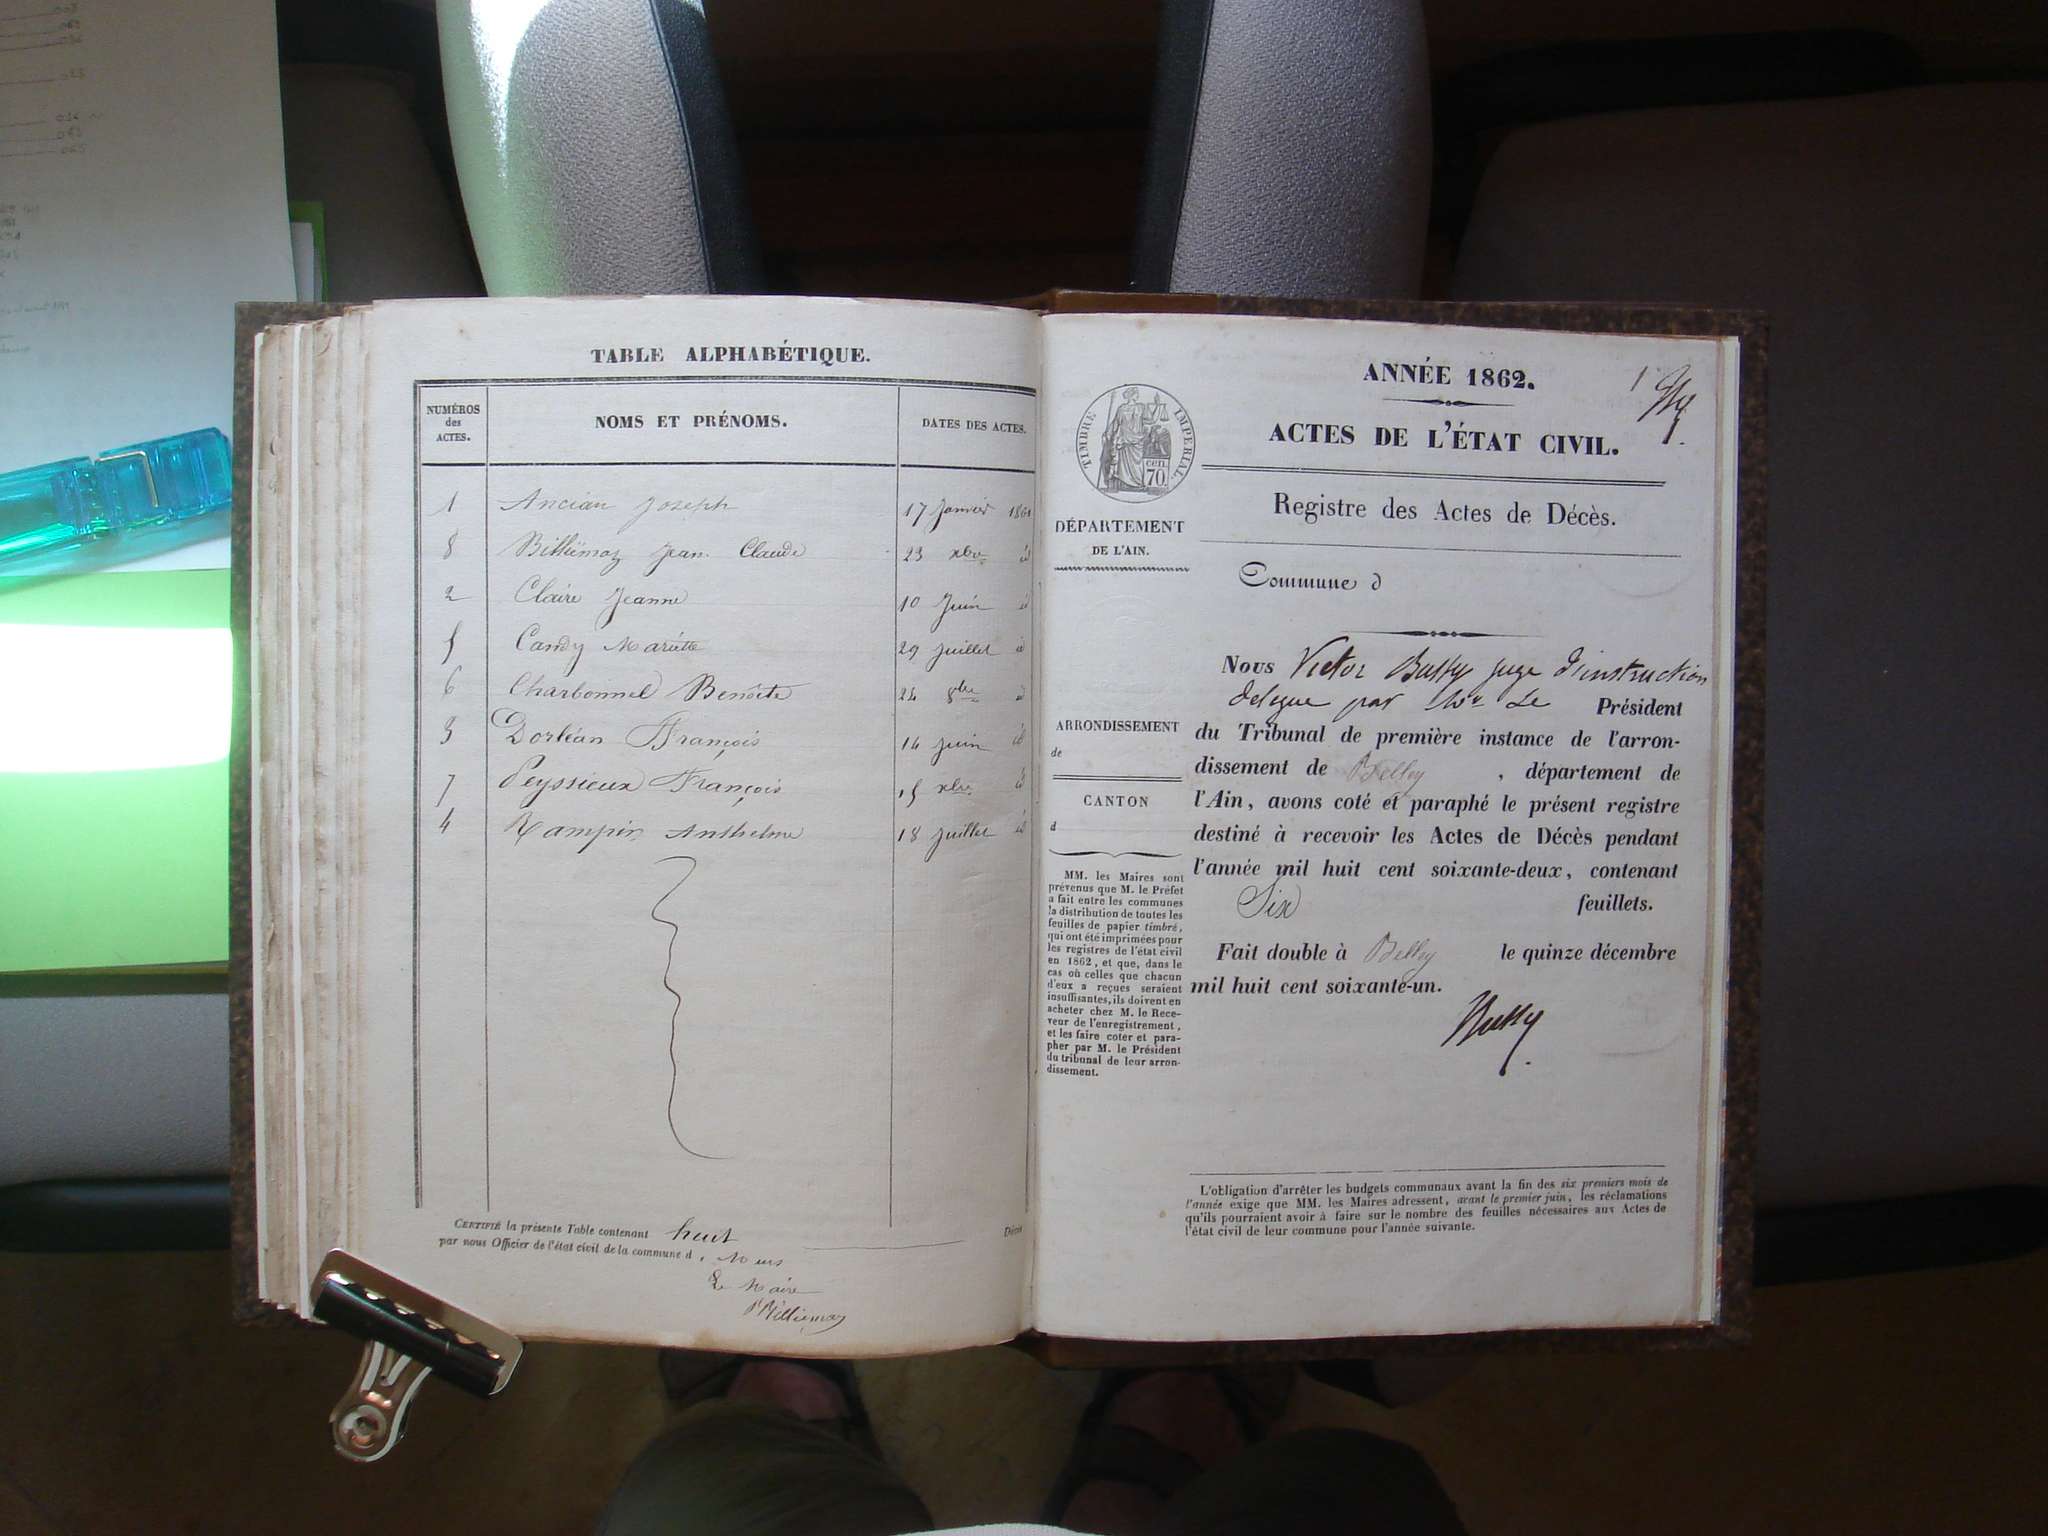 TABLE ALPHABÉTIQUE.
NUMÉROS des ACTES. NOMS ET PRÉNOMS. DATES DES ACTES.
1 Ancian Joseph 17 Janvier 1861
8 Billiémaz Jean Claude 23 xbre id
2 Claire Jeanne 10 Juin id
5 Candy Mariette 29 Juillet id
6 Charbonnel Benoite 24 8bre id
3 Dorléan François 14 Juin id
7 Peyssieux François 15 xbre id
4 Rampin Anthelme 18 Juillet id
CERTIFIÉ la présente Table contenant huit Décès
par nous Officier de l'état civil de la commune d
Le Maire
Billiemaz
ANNÉE 1862.
1
ACTES DE L'ÉTAT CIVIL.
TIMBRE IMPERIAL
cen.
70.
Registre des Actes de Décès.
DÉPARTEMENT
DE L'AIN.
Commune d
Nous Victor Bussy juge d'instruction
delegue par Mr Le Président
du Tribunal de première instance de l'arron-
dissement de Belley , département de
l'Ain, avons coté et paraphé le présent registre
destiné à recevoir les Actes de Décès pendant
l'année mil huit cent soixante-deux, contenant
Six feuillets.
Fait double à Belley le quinze décembre
mil huit cent soixante-un.
Bussy
ARRONDISSEMENT
de
CANTON
d
MM. les Maires sont
prévenus que M. le Préfet
a fait entre les communes
la distribution de toutes les
feuilles de papier timbré,
qui ont été imprimées pour
les registres de l'état civil
en 1862, et que, dans le
cas où celles que chacun
d'eux a reçues seraient
insuffisantes, ils doivent en
acheter chez M. le Rece-
veur de l'enregistrement,
et les faire coter et para-
pher par M. le Président
du tribunal de leur arron-
dissement.
L'obligation d'arrêter les budgets communaux avant la fin des six premiers mois de
l'année exige que MM. les Maires adressent, avant le premier juin, les réclamations
qu'ils pourraient avoir à faire sur le nombre des feuilles nécessaires aux Actes de
l'état civil de leur commune pour l'année suivante.